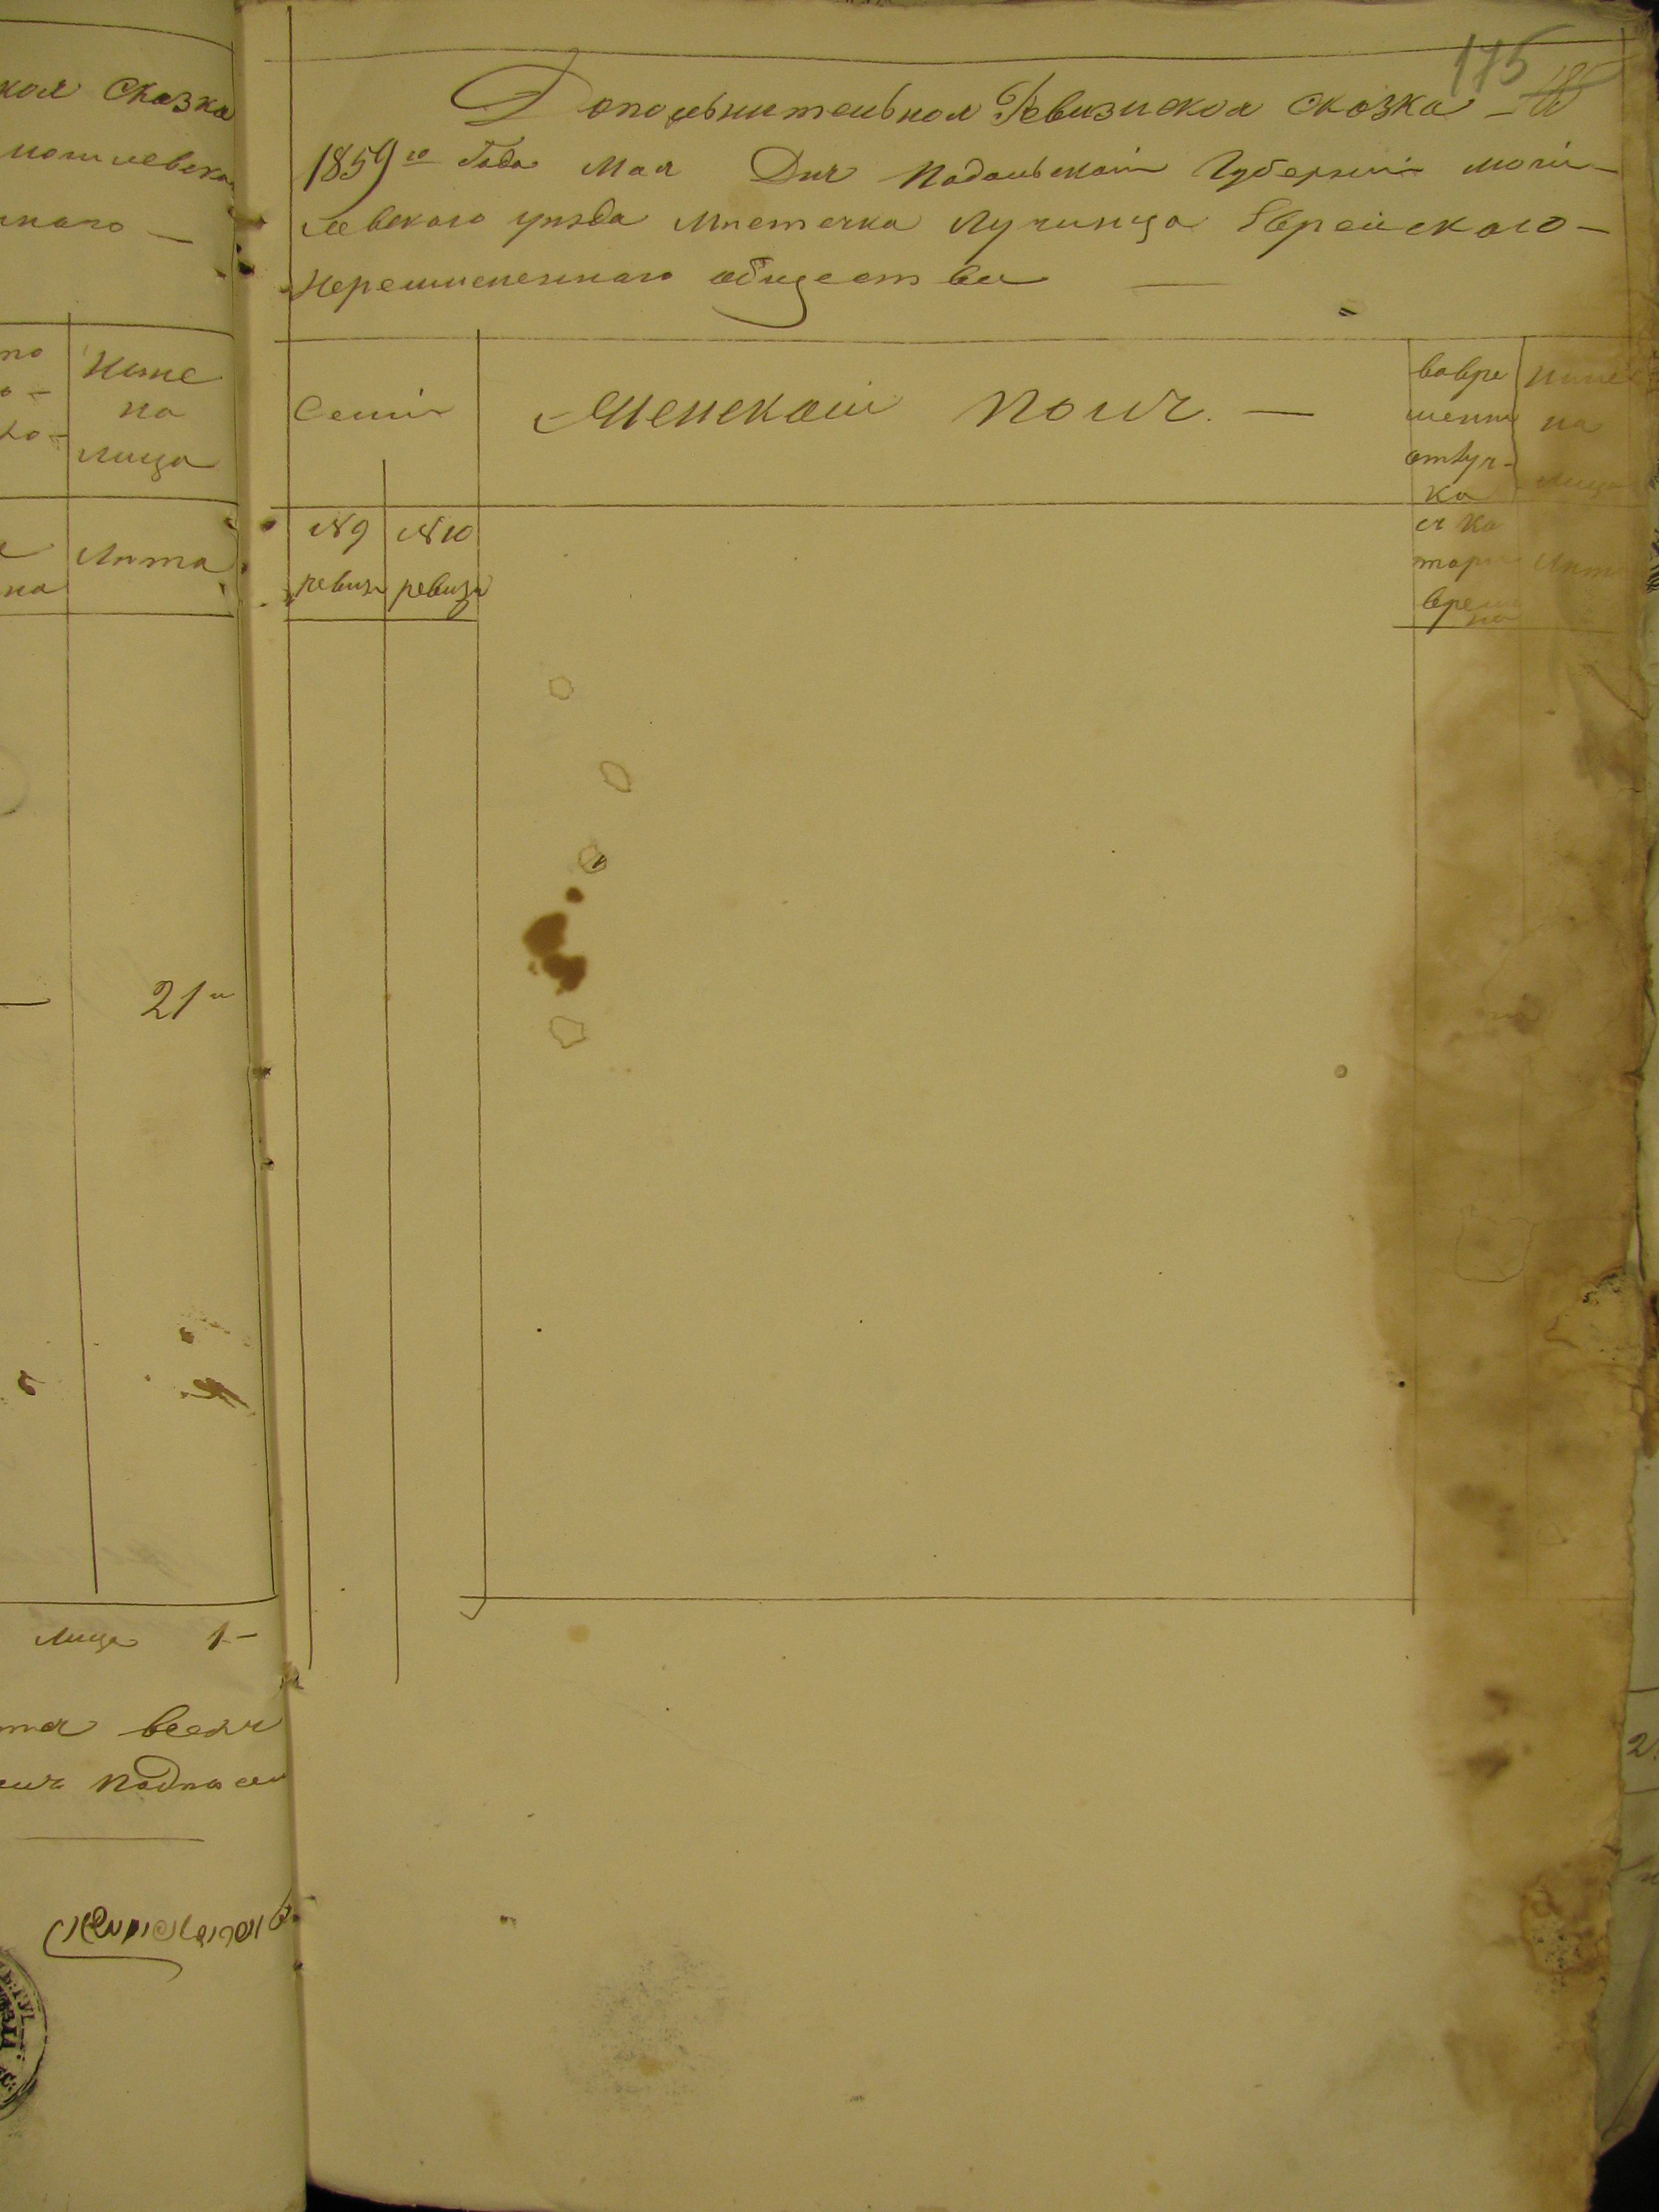 кая Сказка
могилевска
ннаго —
Ныне
на
лицо
Лѣта
на
21
лица 1 —
всехъ
175
Дополнительная Ревизская сказка —
1859го Года Мая Дня Подольской Губернии Моги-
левского уезда Мнстечка Лучинца Еврейского —
Перечисленнаго общества —
Семiи
Женскаго Полъ. —
вовре
менни
отлуч-
ка
Ныне
на
лицо
№ 9
ревизи
№ 10
ревизи
с ка
тораго
време
на
Лѣта